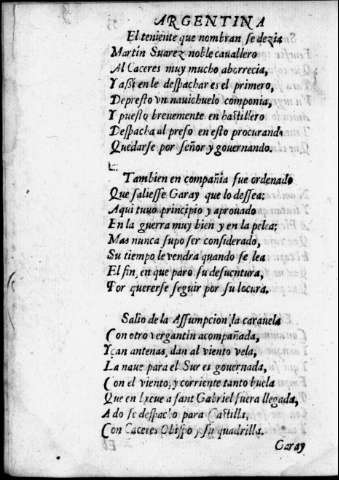 ARGENTINA
El teniente que nombran se dezia
Martin Suarez noble cauallero
Al Caceres muy mucho aborrecia,
Y assi en le despachar es el primero,
De presto vn nauichuelo componia,
Y puesto breuemente en hastillero
Despacha al preso en esto procurand
Quedarse por señor y gouernando.
Tambien en compañia fue ordenado
Que saliesse Garay que lo dessea:
Aqui tuuo principio y aprouado
En la guerra muy bien y en la pelea;
Mas nunca supo ser considerado,
Su tiempo le vendra quando se lea
El fin, en que paro su desuentura,
Por quererse seguir por su locura.
Salio de la Assumpcion la carauela
Con otro vergantin acompañada,
Yçan antenas, dan al viento vela,
La naue para el Sur es gouernada,
Con el viento, y corriente tanto buela
Que en breue a sant Gabriel fuera llegada,
A do se despacho para Castilla,
Con Caceres Obispo y su quadrilla.
Garay